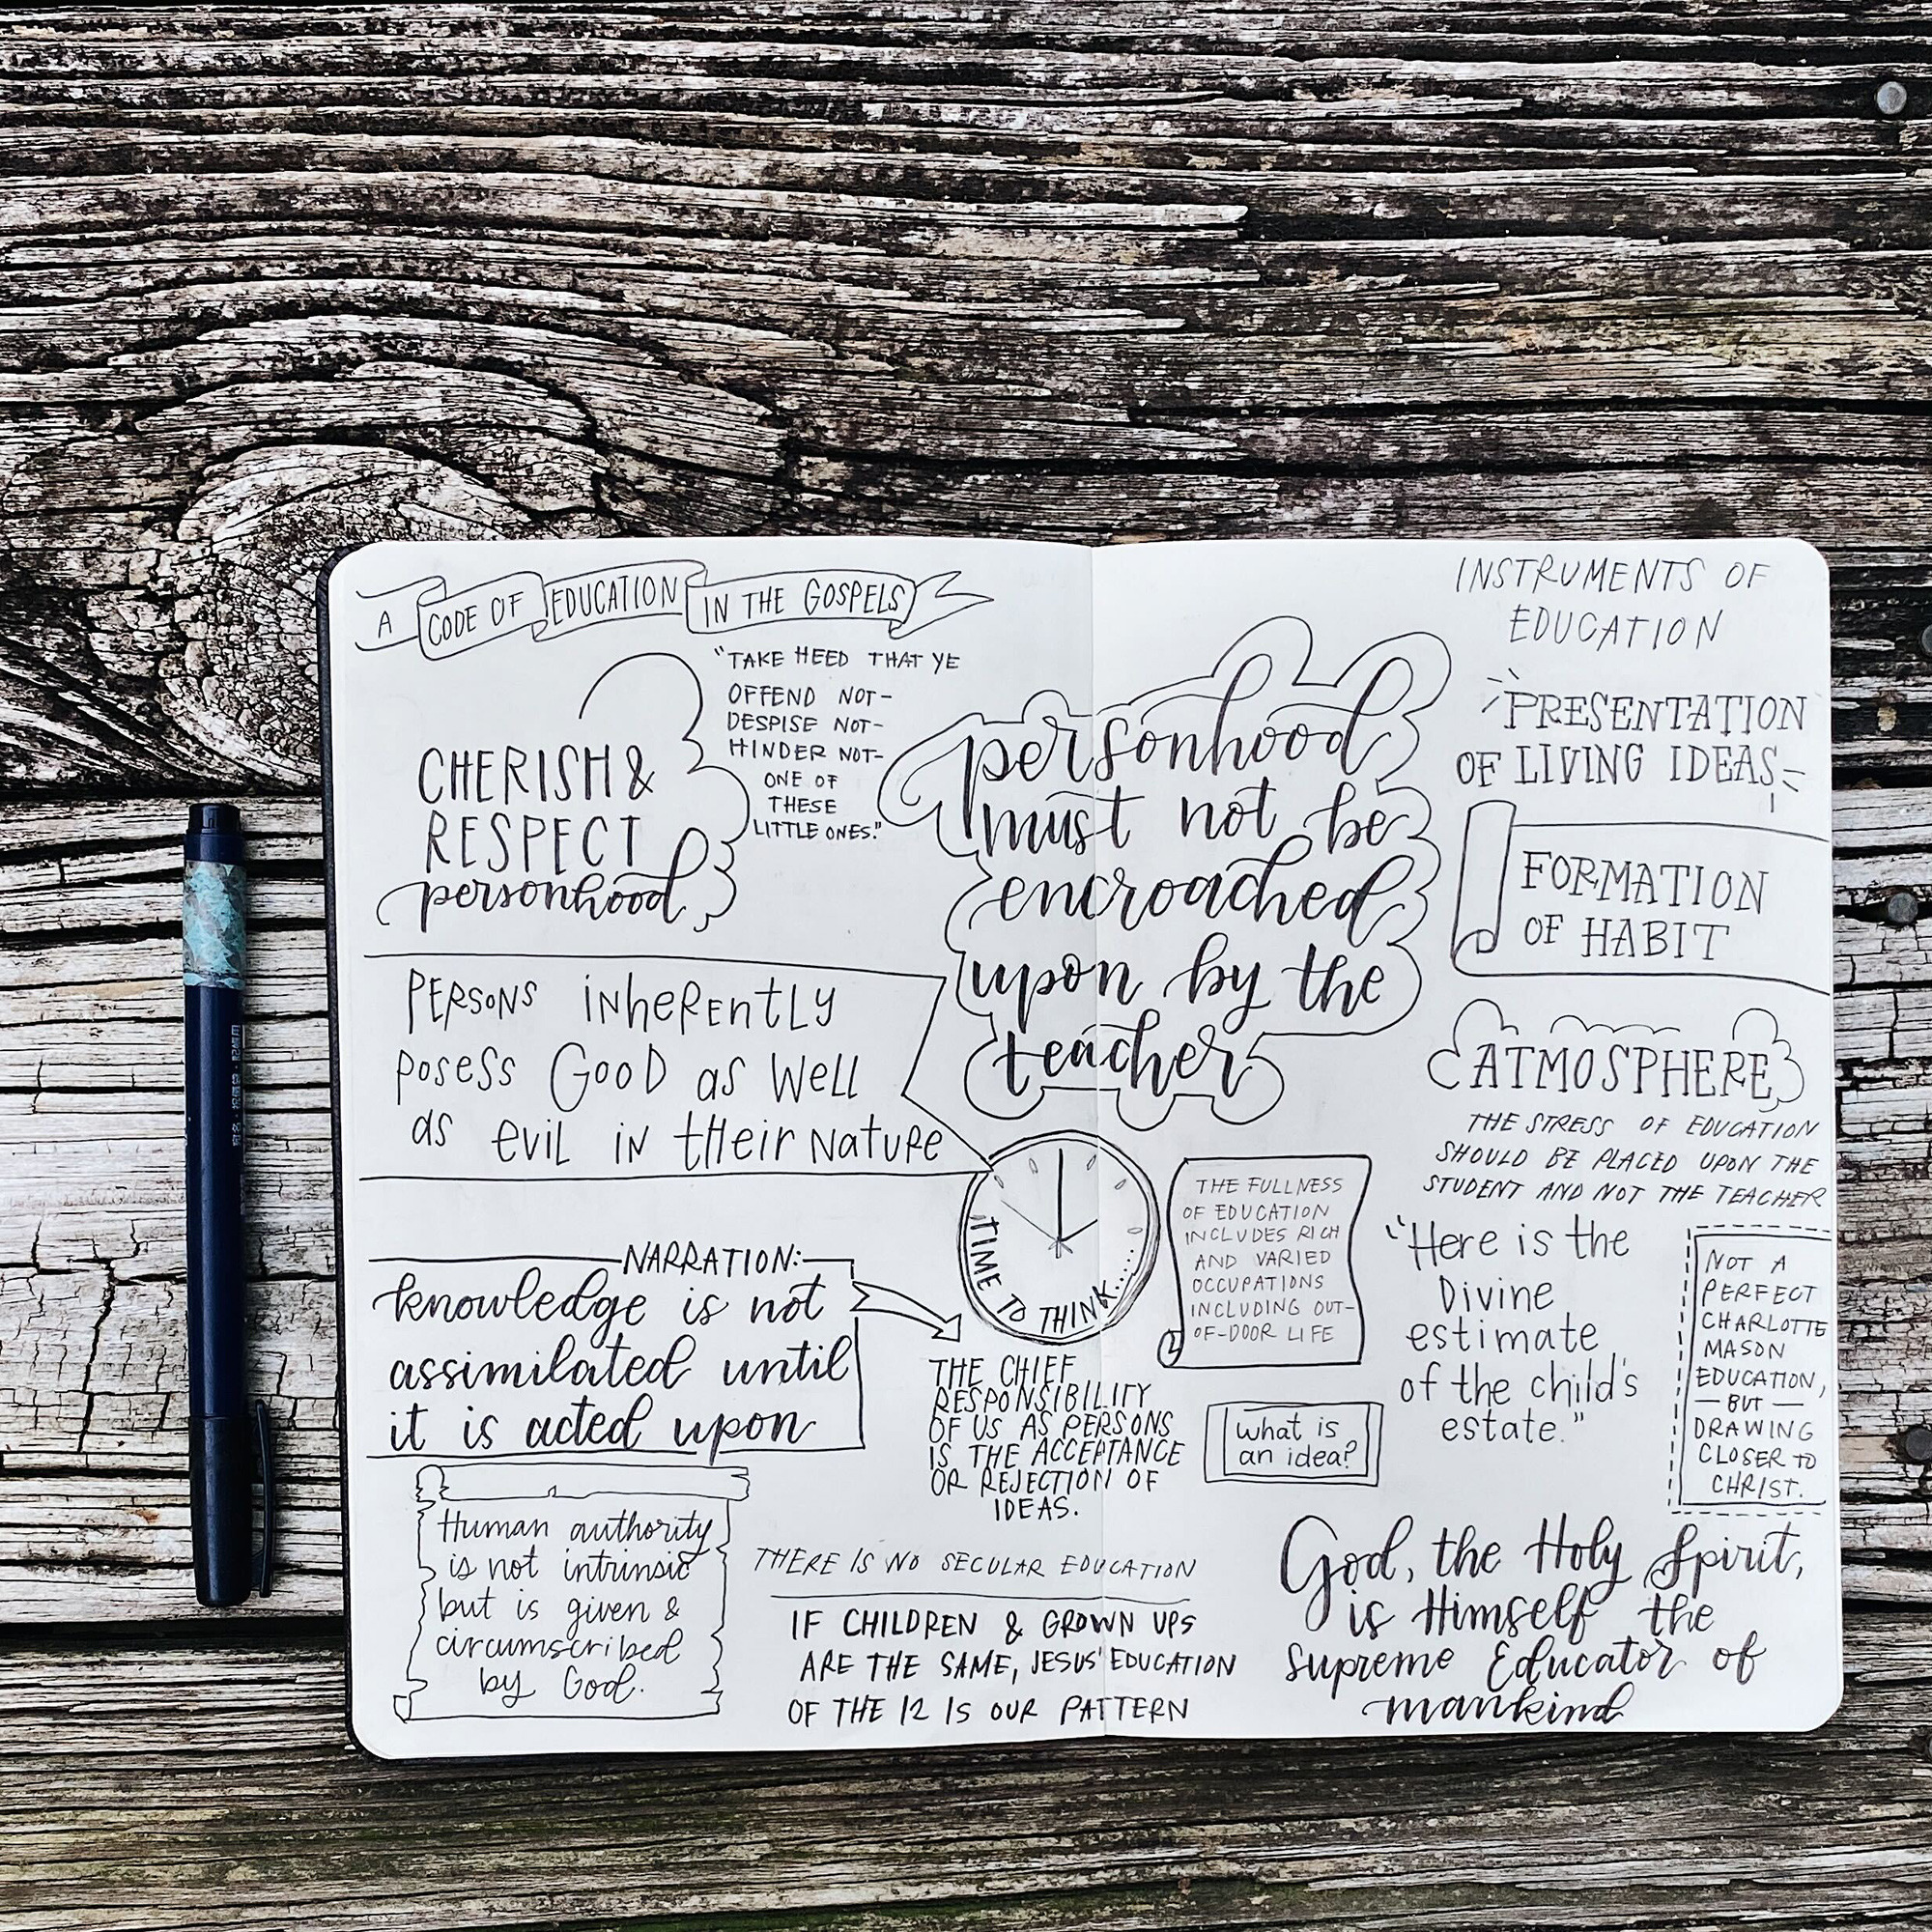 A CODE OF EDUCATION IN THE GOSPELS
CHERISH &
RESPECT
personhood
"TAKE HEED THAT YE
OFFEND NOT-
DESPISE NOT-
HINDER NOT-
ONE OF
THESE
LITTLE ONES."
PERSONS inherently
posess GOOD as well
as evil in their nature
NARRATION:
knowledge is not
assimilated until
it is acted upon
Human authority
is not intrinsic
but is given &
circumscribed
by God.
personhood
must not be
encroached
upon by the
teacher
TIME TO THINK......
THE CHIEF
RESPONSIBILITY
OF US AS PERSONS
IS THE ACCEPTANCE
OR REJECTION OF
IDEAS.
THE FULLNESS
OF EDUCATION
INCLUDES RICH
AND VARIED
OCCUPATIONS
INCLUDING OUT-
OF-DOOR LIFE
what is
an idea?
THERE IS NO SECULAR EDUCATION
IF CHILDREN & GROWN UPS
ARE THE SAME, JESUS' EDUCATION
OF THE 12 IS OUR PATTERN
INSTRUMENTS OF
EDUCATION
PRESENTATION
OF LIVING IDEAS
FORMATION
OF HABIT
ATMOSPHERE
THE STRESS OF EDUCATION
SHOULD BE PLACED UPON THE
STUDENT AND NOT THE TEACHER
"Here is the
Divine
estimate
of the child's
estate."
NOT A
PERFECT
CHARLOTTE
MASON
EDUCATION,
— BUT —
DRAWING
CLOSER TO
CHRIST.
God, the Holy Spirit,
is Himself the
supreme Educator of
mankind